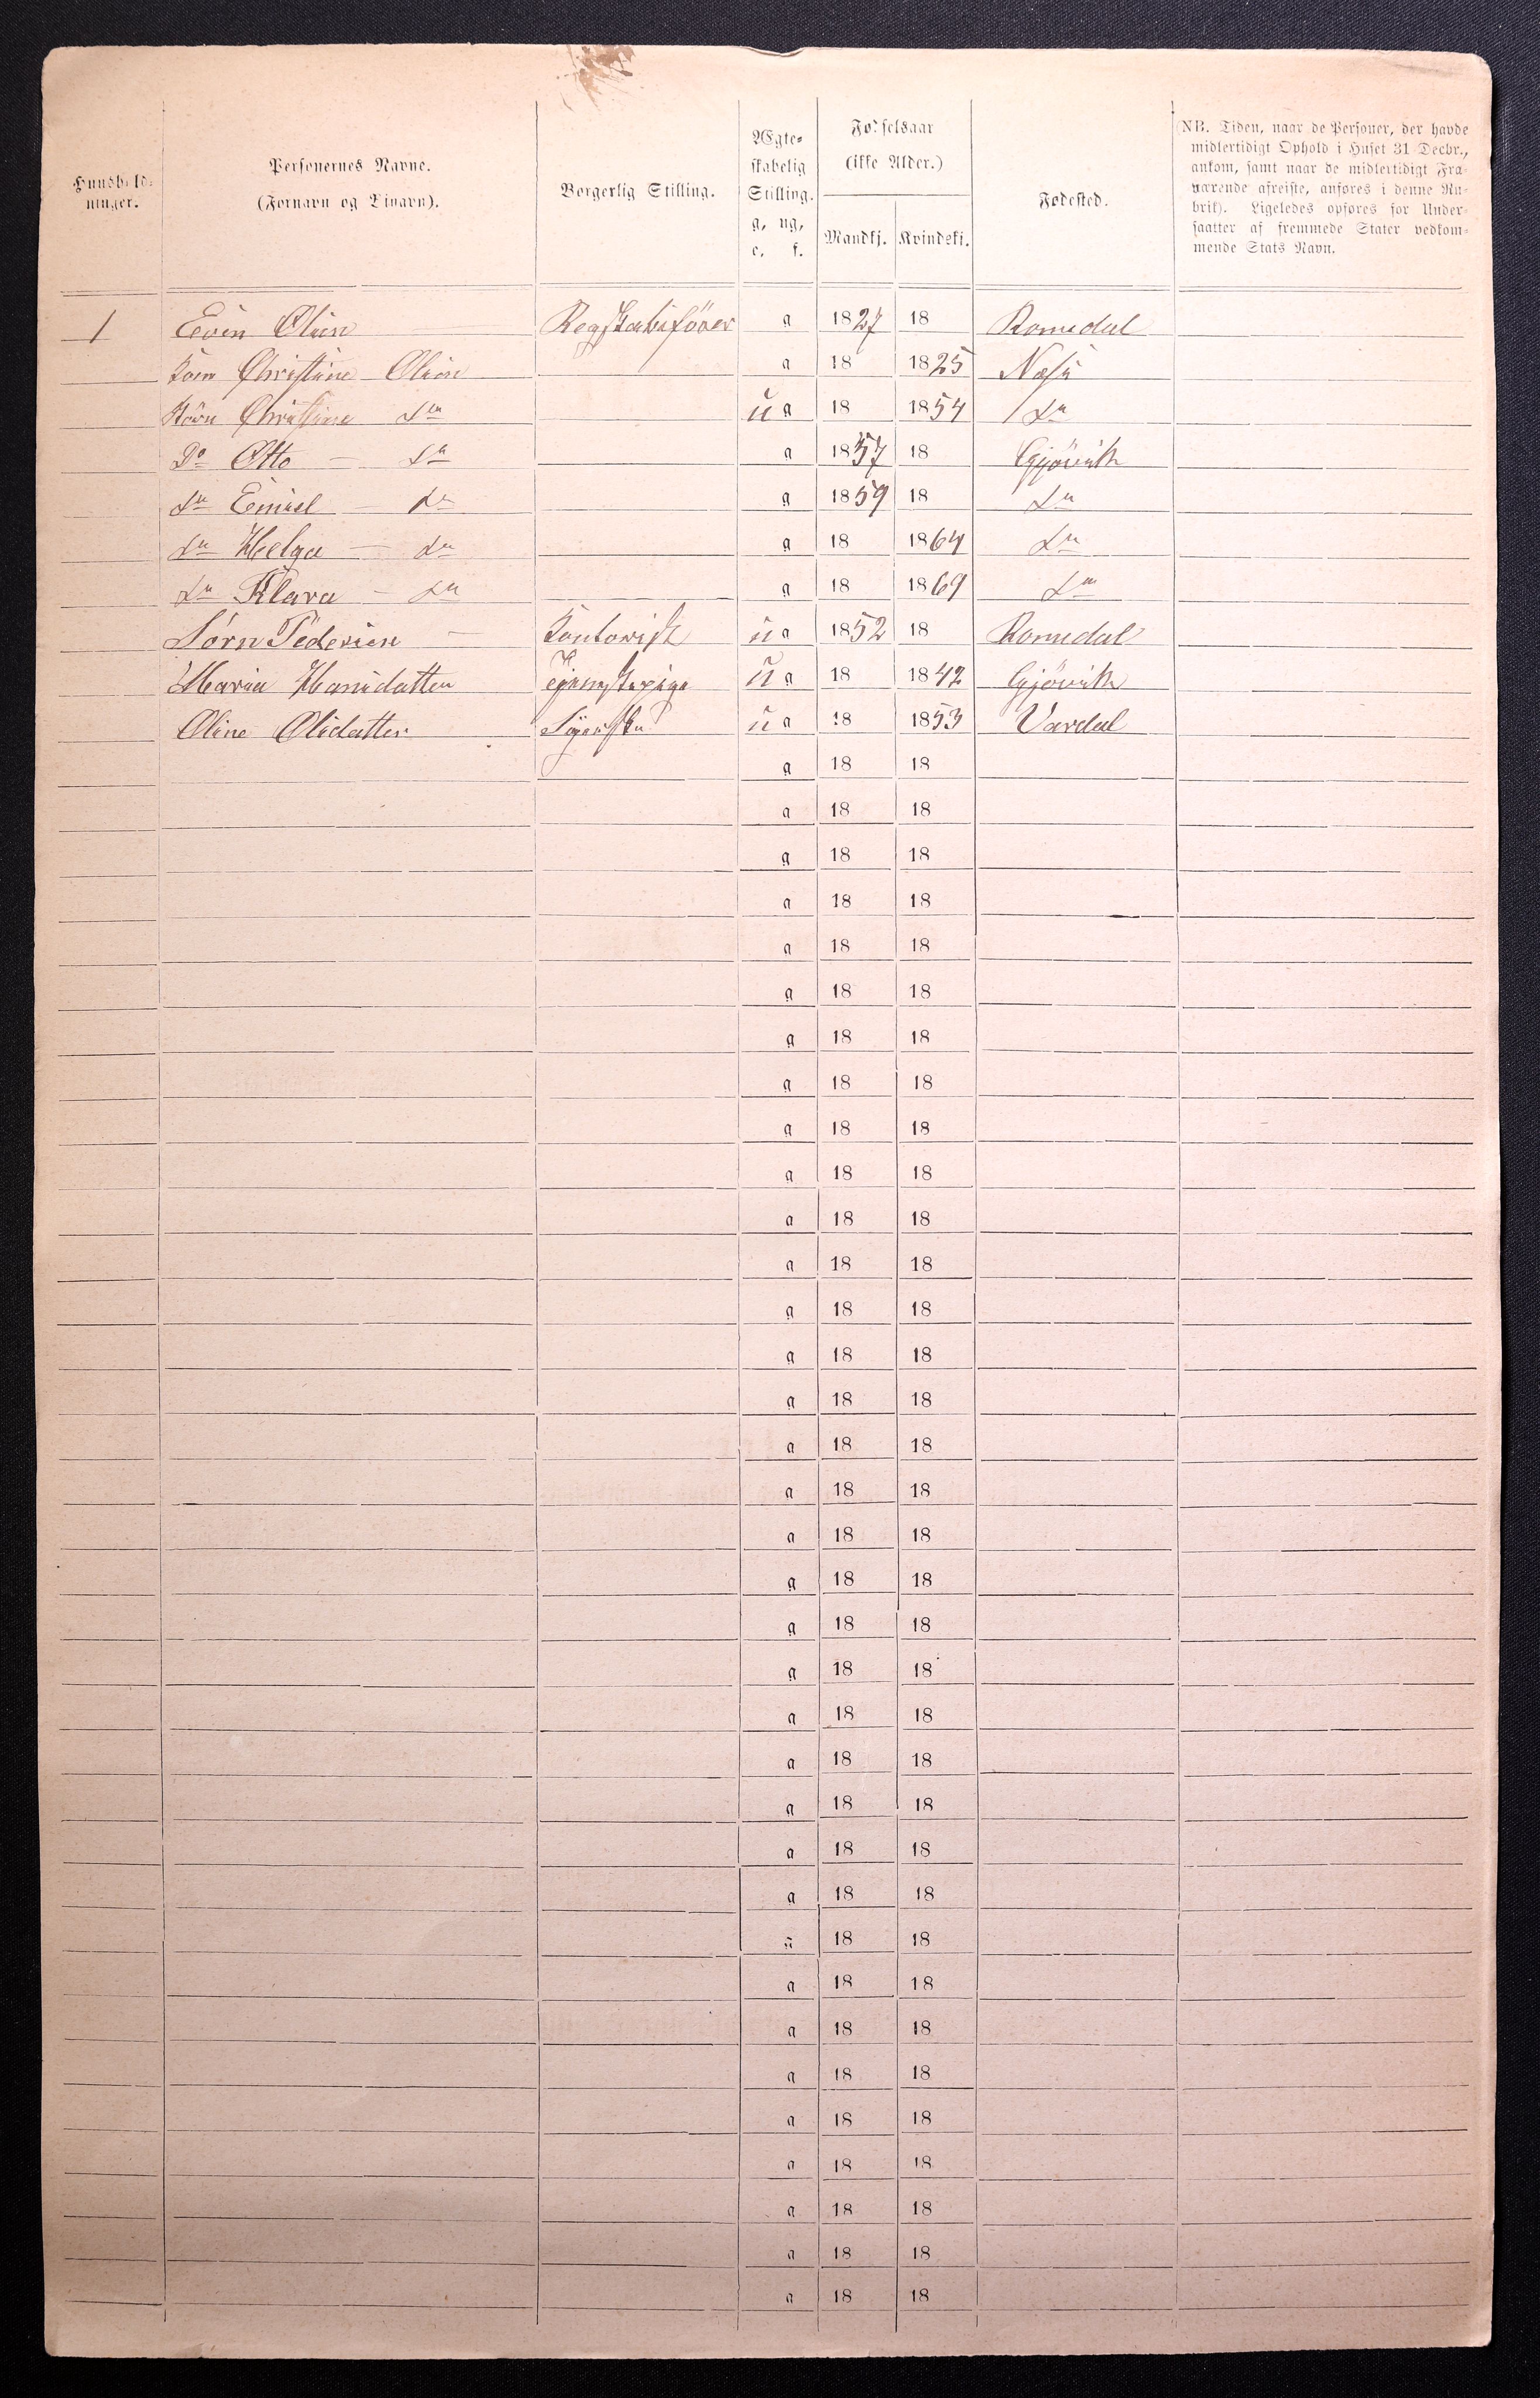 Huushold-
ninger.
Personernes Navne.
(Fornavn og Tinavn).
Borgerlig Stilling.
Ægte-
skabelig
Stilling.
g, ug,
e, f.
Fødselsaar
(ikke Alder.)
Mandkj. Kvindekj.
Fødested.
(NB. Tiden, naar de Personer, der havde
midlertidigt Ophold i Huset 31 Decbr.,
ankom, samt naar de midlertidigt Fra-
værende afreiste, anføres i denne Ru-
brik). Ligeledes opføres for Under-
saatter af fremmede Stater vedkom-
mende Stats Navn.
1 Even Olsen Regnskabsfører g 1827 18 Romedal
Christine Olsen g 18 1825 Næs
Børn Christine Do u g 18 1854 Do
Do Otto - Do g 1857 18 Gjøvik
Do Emiel - Do g 1859 18 Do
Do Helga - Do g 18 1864 Do
Do Klara - Do g 18 1869 Do
Sørn Pedersen - Kontorist u g 1852 18 Romedal
Maria Hansdatter Tjenestepige u g 18 1842 Gjøvik
Oline Olsdatter u g 18 1853 Vardal
g 18 18
g 18 18
g 18 18
g 18 18
g 18 18
g 18 18
g 18 18
g 18 18
g 18 18
g 18 18
g 18 18
g 18 18
g 18 18
g 18 18
g 18 18
g 18 18
g 18 18
g 18 18
g 18 18
g 18 18
g 18 18
g 18 18
g 18 18
g 18 18
g 18 18
g 18 18
g 18 18
g 18 18
g 18 18
g 18 18
g 18 18
g 18 18
g 18 18
g 18 18
g 18 18